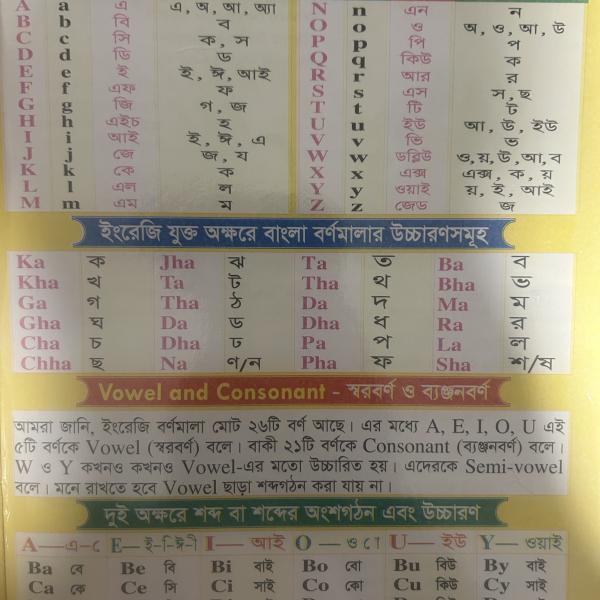 A a এ এ, অ, আ, অ্যা N n এন ন
B b বি ব O o ও অ, ও, আ, উ
C c সি ক, স P p পি প
D d ডি ড Q q কিউ ক
E e ই ই, ঈ, আই R r আর র
F f এফ ফ S s এস স, ছ
G g জি গ, জ T t টি ট
H h এইচ হ U u ইউ আ, উ, ইউ
I i আই ই, ঈ, এ V v ভি ভ
J j জে জ, য W w ডব্লিউ ও,য়,উ,আ,ব
K k কে ক X x এক্স এক্স, ক, য়
L l এল ল Y y ওয়াই য়, ই, আই
M m এম ম Z z জেড জ
ইংরেজি যুক্ত অক্ষরে বাংলা বর্ণমালার উচ্চারণসমূহ
Ka ক Jha ঝ Ta ত Ba ব
Kha খ Ta ট Tha থ Bha ভ
Ga গ Tha ঠ Da দ Ma ম
Gha ঘ Da ড Dha ধ Ra র
Cha চ Dha ঢ Pa প La ল
Chha ছ Na ণ/ন Pha ফ Sha শ/ষ
Vowel and Consonant - স্বরবর্ণ ও ব্যঞ্জনবর্ণ
আমরা জানি, ইংরেজি বর্ণমালা মোট ২৬টি বর্ণ আছে। এর মধ্যে A, E, I, O, U এই
৫টি বর্ণকে Vowel (স্বরবর্ণ) বলে। বাকী ২১টি বর্ণকে Consonant (ব্যঞ্জনবর্ণ) বলে।
W ও Y কখনও কখনও Vowel-এর মতো উচ্চারিত হয়। এদেরকে Semi-vowel
বলে। মনে রাখতে হবে Vowel ছাড়া শব্দগঠন করা যায় না।
দুই অক্ষরে শব্দ বা শব্দের অংশগঠন এবং উচ্চারণ
A—এ-ে E—ই-ি-ঈ-ী I—আই O—ও ো U—ইউ Y—ওয়াই
Ba বে Be বি Bi বাই Bo বো Bu বিউ By বাই
Ca কে Ce সি Ci সাই Co কো Cu কিউ Cy সাই